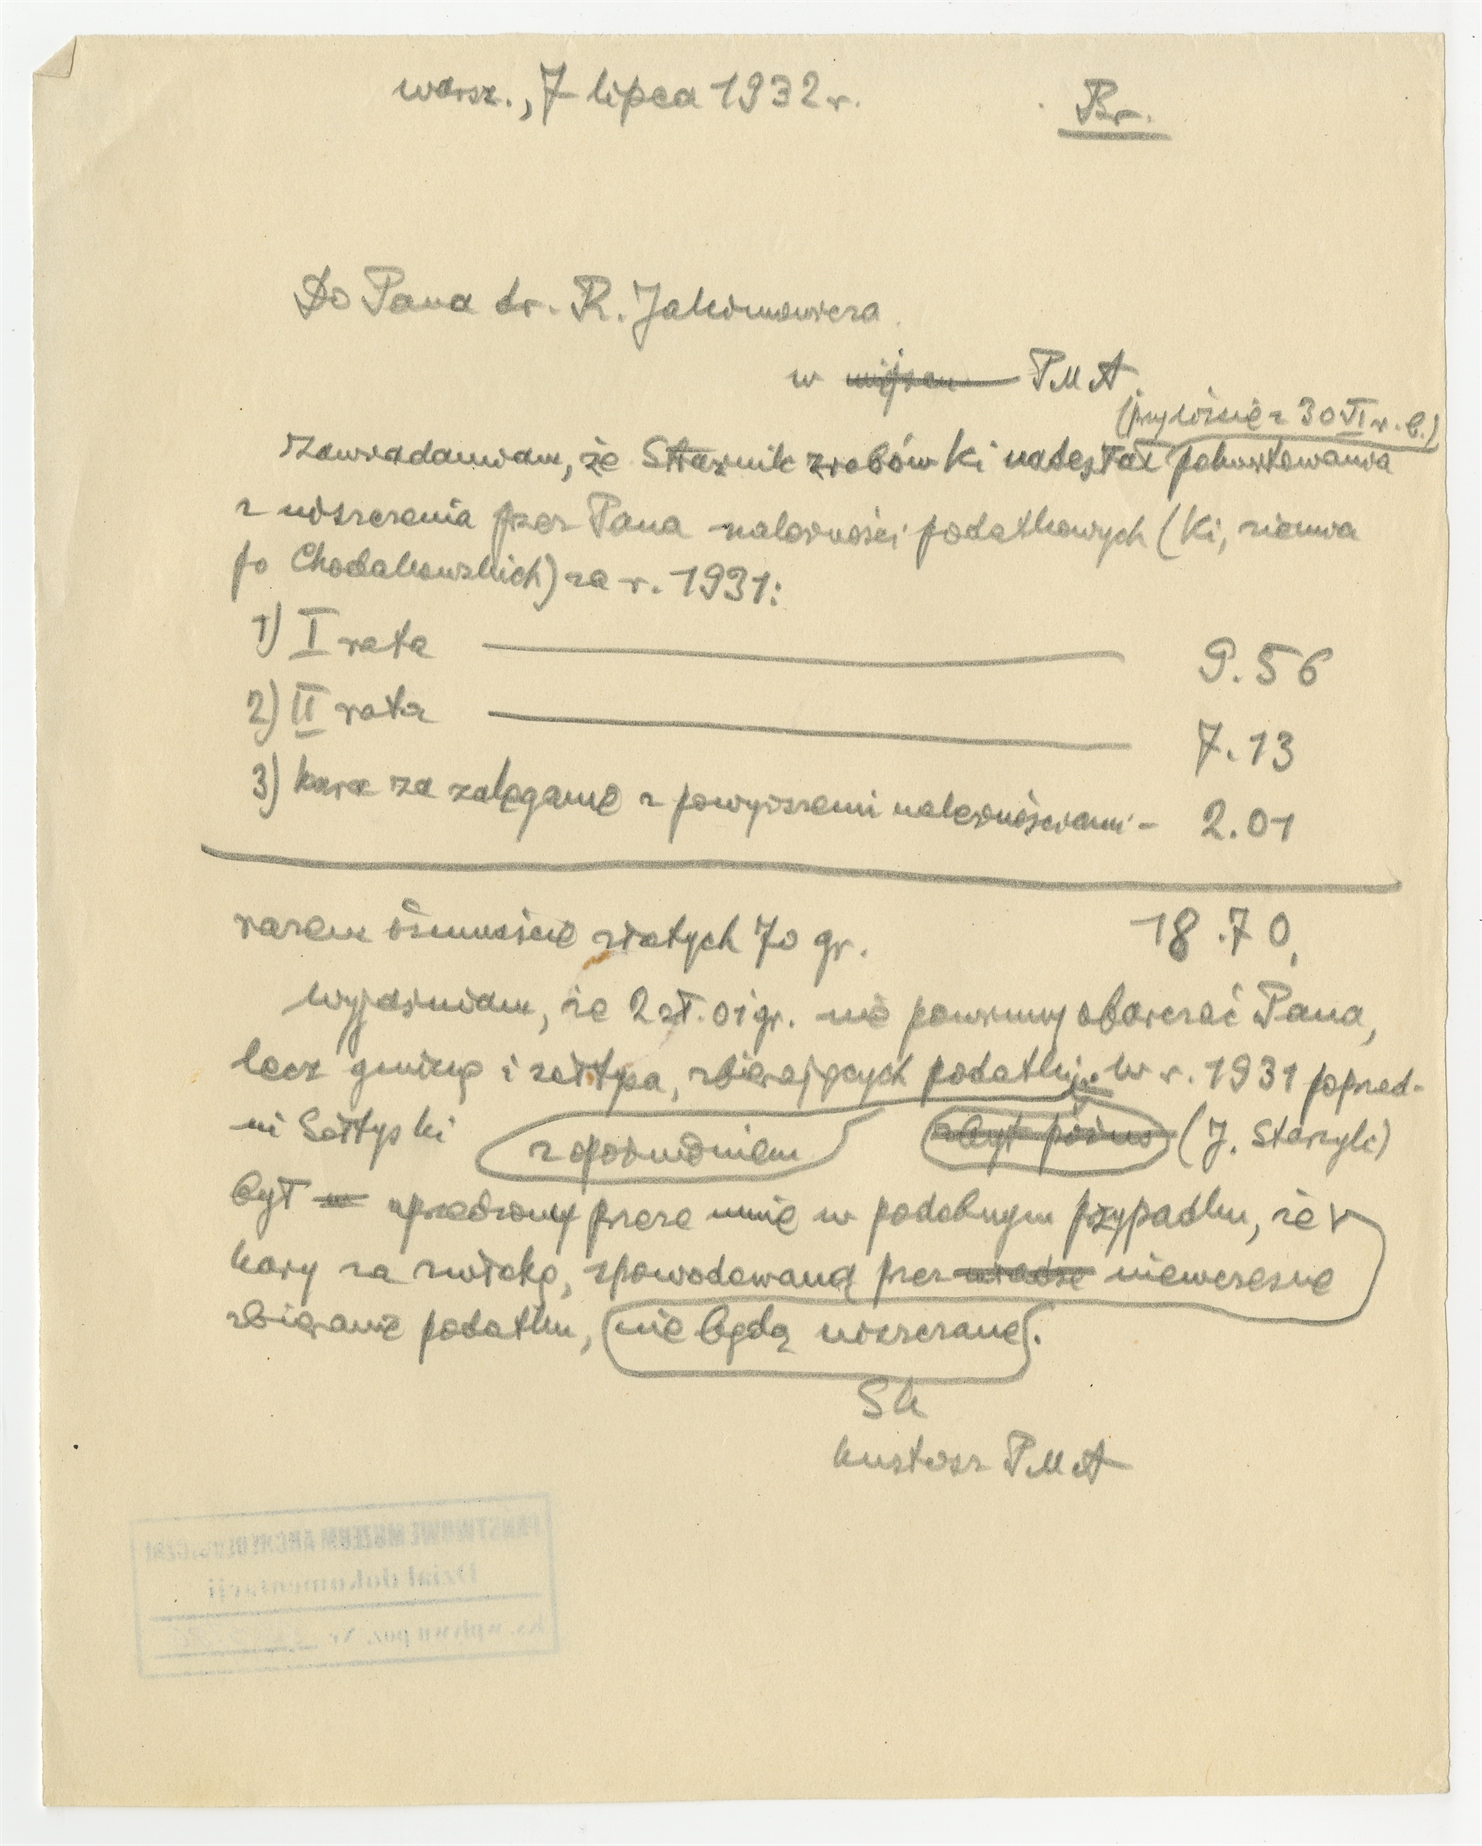 warsz., 7 lipca 1932 r.
Br.
Do Pana dr. R. Jakimowicza
w miejscu PMA
(przy liście z 30 VI r. b.)
Zawiadamiam, że Strażnik zrobów Ki nadesłał pokwitowania
z uiszczenia przez Pana należności podatkowych (Ki, ziemia
po Chodakowskich) za r. 1931:
1) I rata 9.56
2) II rata 7.13
3) kara za zaleganie z powyższemi należnościami - 2.01
razem ośmnaście złotych 70 gr. 18.70,
Wyjaśniam, że 2 zł. 01 gr. nie powinny obarczać Pana,
lecz gminę i sołtysa, zbierających podatki. W r. 1931 poprzed-
ni Sołtys Ki z opóźnieniem zbyt późno (J. Starzyk)
był uprzedzony przeze mnie w podobnym przypadku, że
kary za zwłokę, spowodowaną przez niewczesne
zbieranie podatku, nie będą uiszczane.
Sk
kustosz PMA
PAŃSTWOWE MUZEUM ARCHEOLOGICZNE
Dział dokumentacji
Ks. wpływu poz. Nr